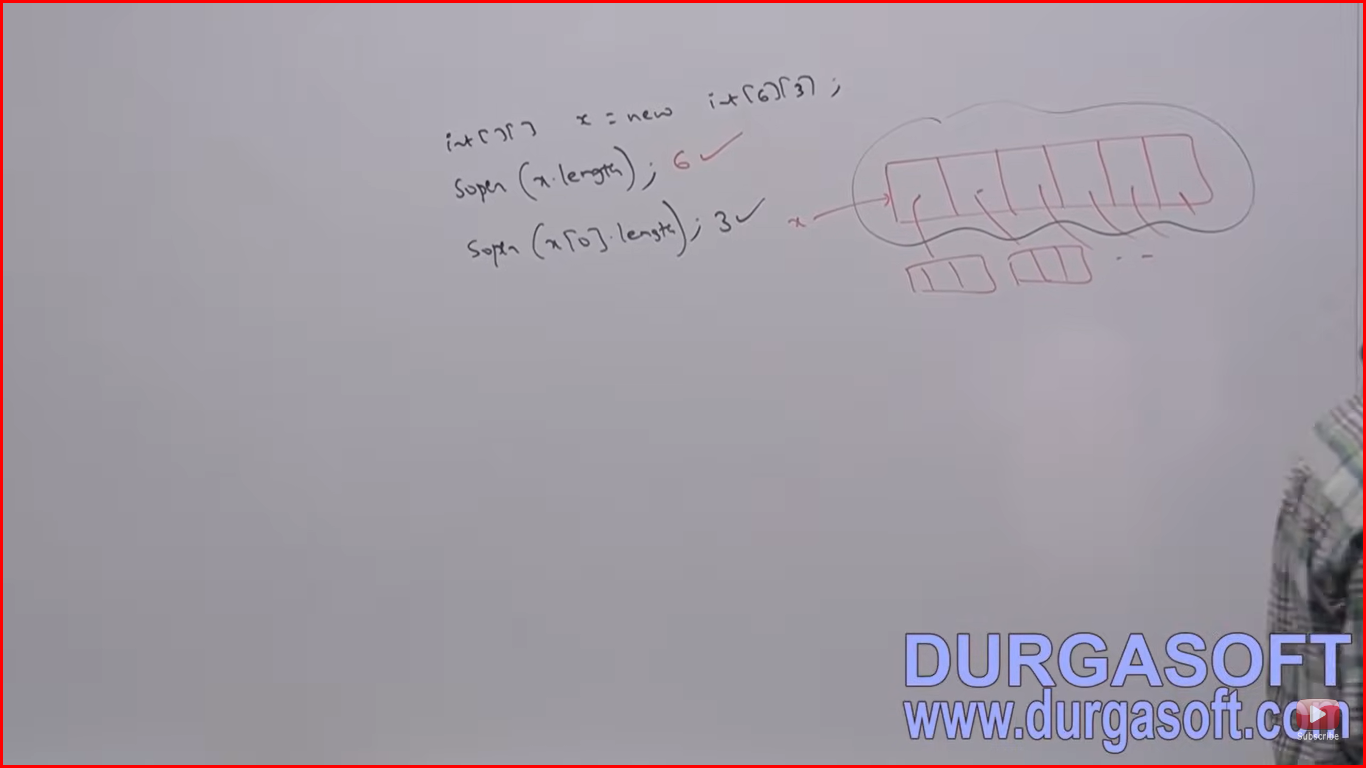 int[][] x = new int[6][3];
Sopln (x.length); 6 ✓
Sopln (x[0].length); 3 ✓
x
DURGASOFT
www.durgasoft.com
Subscribe